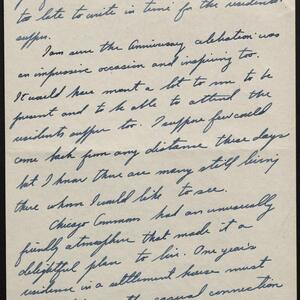 too late to write in time for the residents'
supper.
I am sure the Anniversary celebration was
an impressive occasion and inspiring too.
It would have meant a lot to me to be
present and to be able to attend the
residents supper too. I suppose few could
come back from any distance these days
but I know there are many still living
there whom I would like to see.
Chicago Commons had an unusually
friendly atmosphere that made it a
delightful place to live. One year's
residence in a settlement house must
casual connection